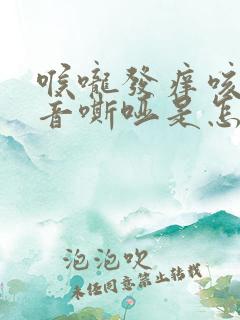 喉嚨發癢咳
音嘶啞是怎
泡泡吹
未經同意禁止轉載